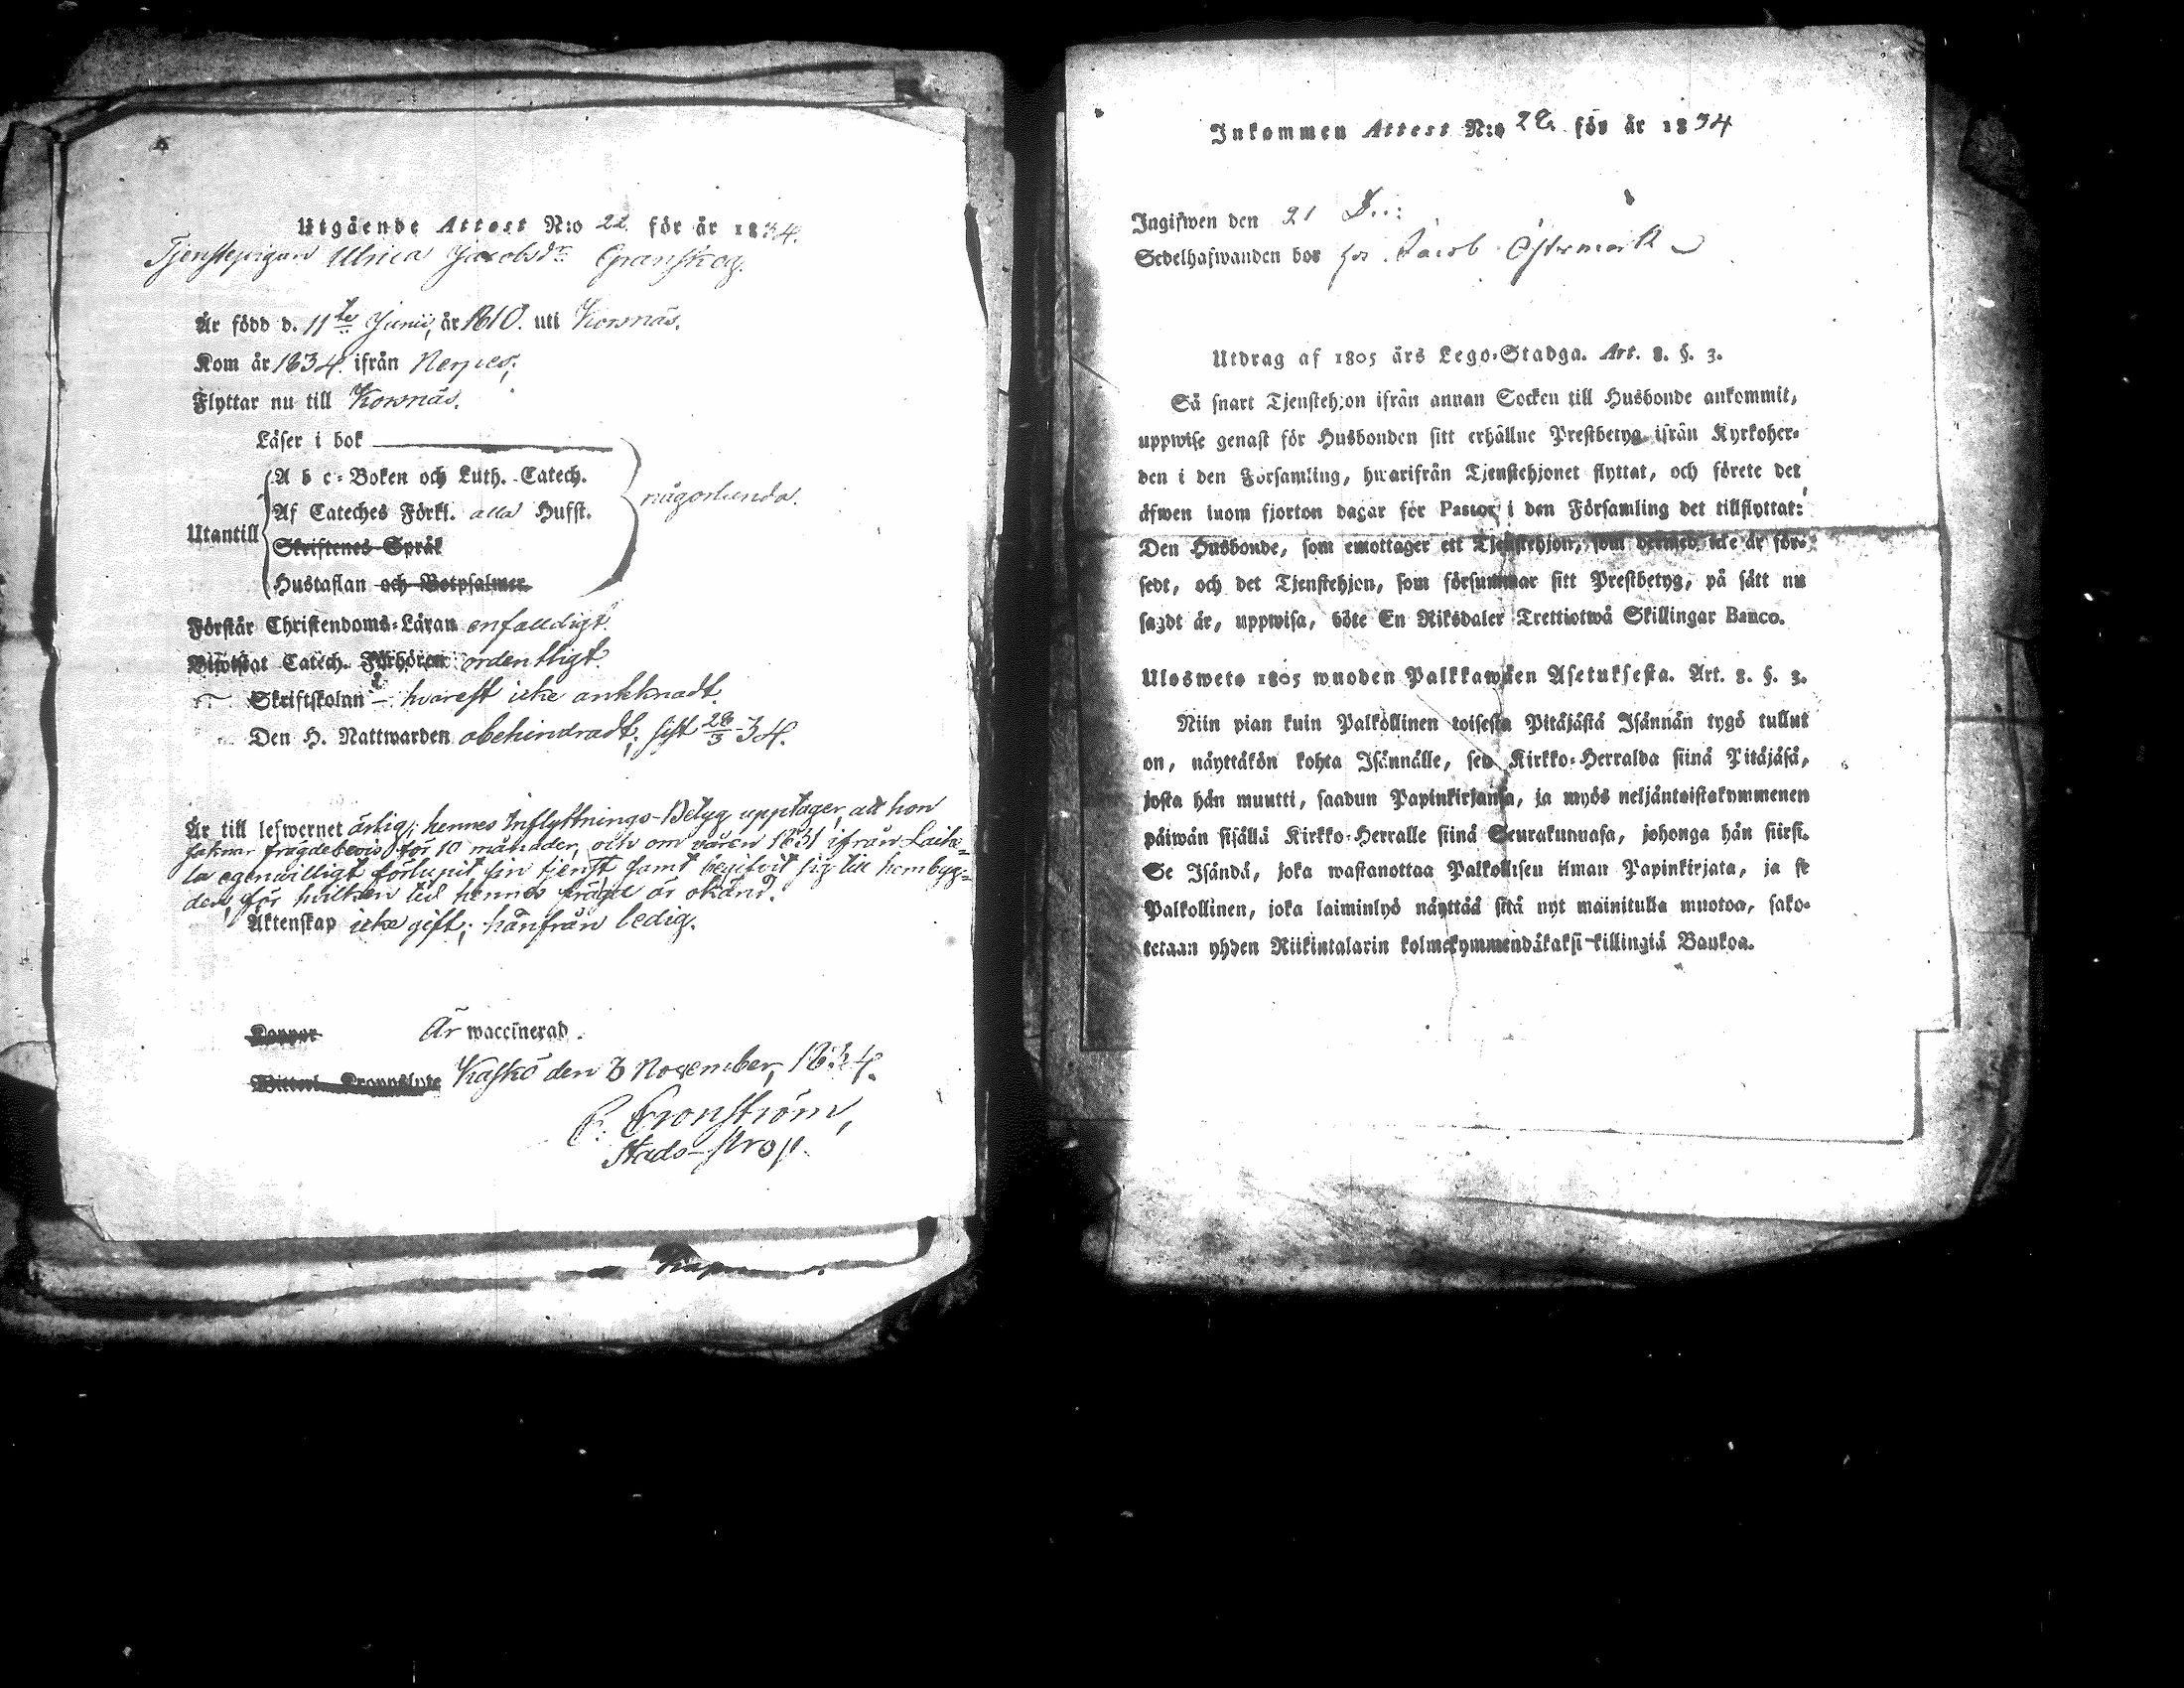 Utgående Attest N:o 22 för år 1834.
Tjenstepigan Ulrica Jacobsdr Granskog.
Är född d. 11te Junii, år 1810. uti Korsnäs.
Kom år 1834. ifrån Nerpes;
Flyttar nu till Korsnäs.
Läser i bok
A b c-Boken och Luth. Catech.
någorlunda.
Af Cateches Förkl. alla Hufst.
Utantill
Skriftenes Språk
Hustaflan och Botpsalmer
Förstår Christendoms-Läran enfaldigt.
Biwistat Catech. Förhören ordentligt.
Skriftskolan – hvarest icke antecknadt.
Den H. Nattwarden obehindradt; sist 28/3 34.
Är till lefwernet ärlig; hennes Inflyttnings-Betyg upptager, att hon
saknar frägdebevis för 10 månader, och om våren 1831 ifrån Laihe-
la egenwilligt förlupit sin tjenst samt begifvit sig till hembyg-
den, för hvilken tid hennes frägd är okänd.
Äktenskap icke gift; hänfrån ledig.
Koppor Är waccinerad.
Kaskö den 3 November, 1834.
C. Cronström,
Stads-
Inkommen Attest N:o för år 1834
Ingifwen den 21 D..:
Sedelhafwanden bor hos Jacob Östermark
Utdrag af 1805 års Lego-Stadga. Art. 8. §. 3.
Så snart Tjenstehjon ifrån annan Socken till Husbonde ankommit,
uppwise genast för Husbonden sitt erhållne Prestbetyg ifrån Kyrkoher-
den i den Församling, hwarifrån Tjenstehjonet flyttat, och förete det
äfwen inom fjorton dagar för Pastor i den Församling det tillflyttat:
Den Husbonde, som emottager ett Tjenstehjon, som dermed icke är för-
sedt, och det Tjenstehjon, som försummar sitt Prestbetyg, på sätt nu
sagdt är, uppwisa, böte En Riksdaler Trettiotwå Skillingar Banco.
Uloswetö 1805 wuoden Palkkawäen Asetuksesta. Art. 8. §. 3.
Niin pian kuin Palkollinen toisesta Pitäjästä Isännän tygö tullut
on, näyttäkön kohta Isännälle, sen Kirkko-Herralda siinä Pitäjäsä,
josta hän muutti, saadun Papinkirjansa, ja myös neljäntoistakymmenen
päiwän sisällä Kirkko-Herralle siinä Seurakunnasa, johonga hän siirsi.
Se Isändä, joka wastanottaa Palkollisen ilman Papinkirjata, ja se
Palkollinen, joka laiminlyö näyttää sitä nyt mainitulla muotoa, sako-
tetaan yhden Riikintalarin kolmekymmendäkaksi killingiä Bankoa.